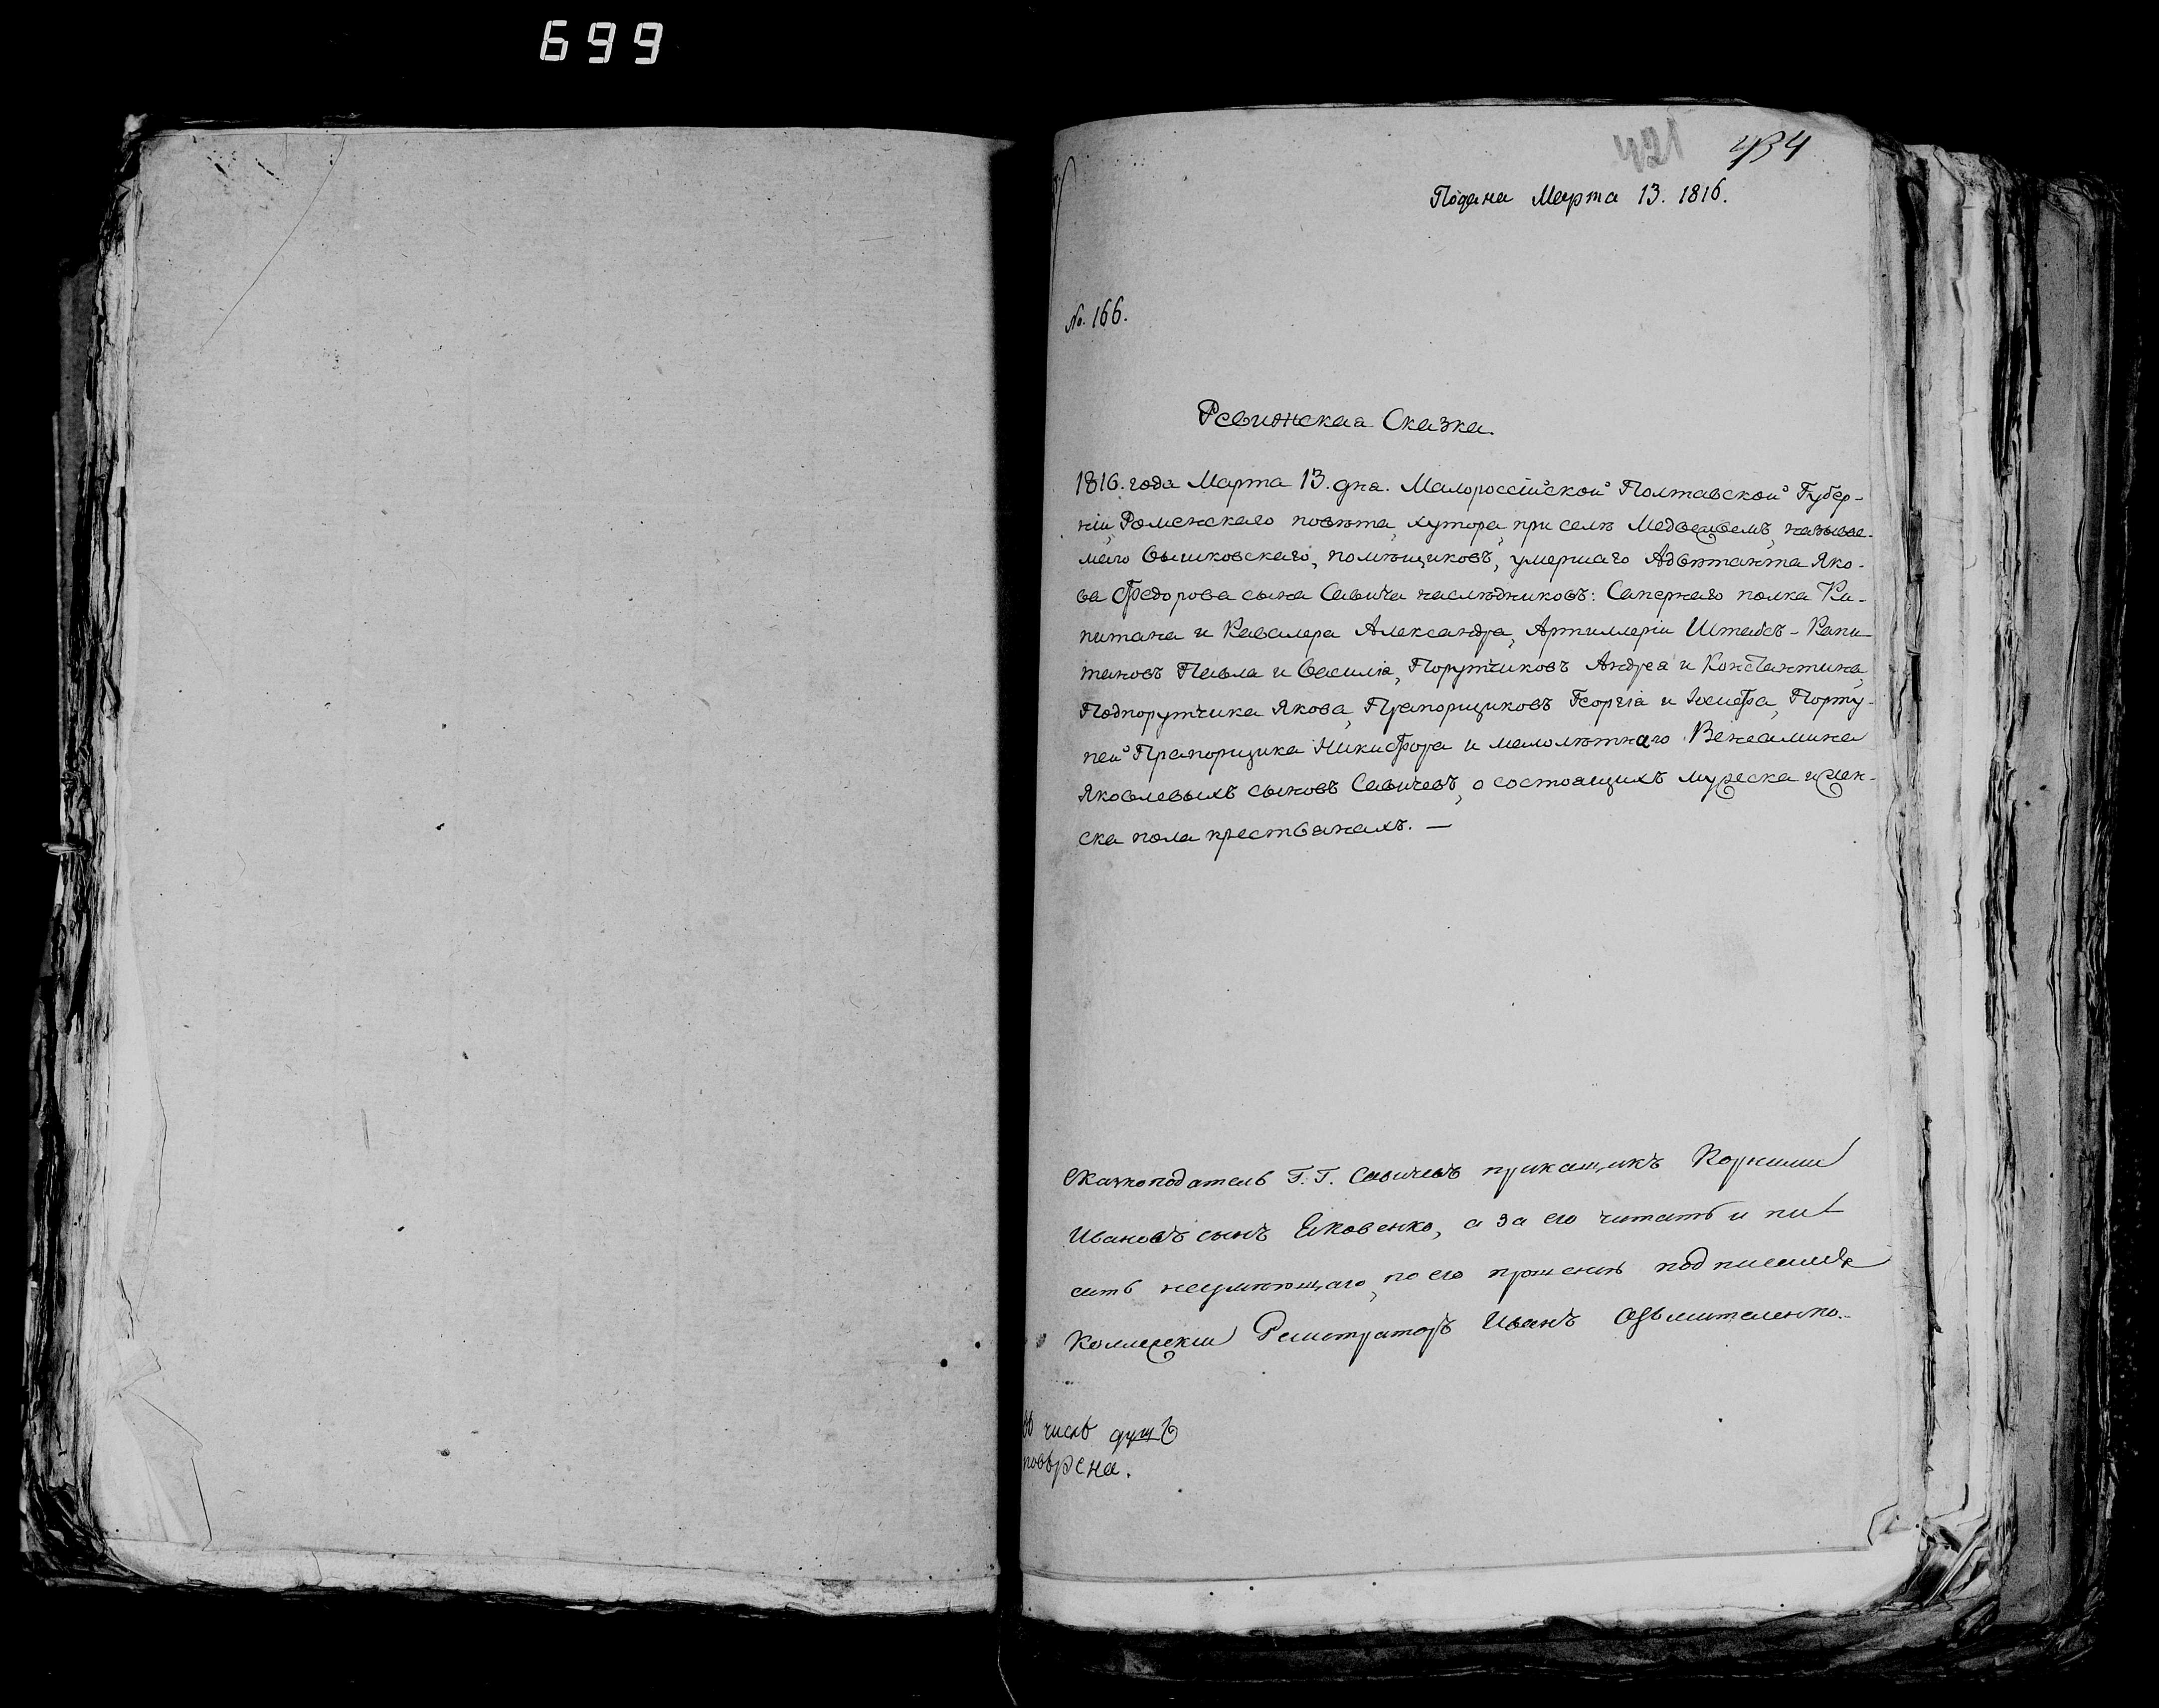 699
421 434
Подана Марта 13. 1816.
№. 166.
Ревижская Сказка.
1816. года Марта 13. дня. Малороссійской Полтавской Губер-
ніи, Роменского повѣта, хутора, при селѣ Медвежьемъ, называе-
маго Вышковскаго, помѣщиковъ, умершаго Адъютанта Яко-
ва Федорова сына Савича наслѣдниковъ: Сапернаго полка Ка-
питана и Кавалера Александра, Артиллеріи Штабсъ-Капи-
тановъ Павла и Василія, Порутчиковъ Андрея и Константина,
Подпорутчика Якова, Прапорщиковъ Георгія и Іосифа, Порту-
пей Прапорщика Никифора и малолѣтнаго Веніамина
Яковлевыхъ сыновъ Савичевъ, о состоящихъ мужеска и жен-
ска пола крестьянахъ. —
Сказкоподатель Г. Г. Савичевъ прикащикъ Корнилий
Ивановъ сынъ Яковенко, а за его читать и пи-
сать неумѣющаго, по его прошенію подписался
Коллежский Регистраторъ Иванъ
въ числѣ душъ
повѣрена.